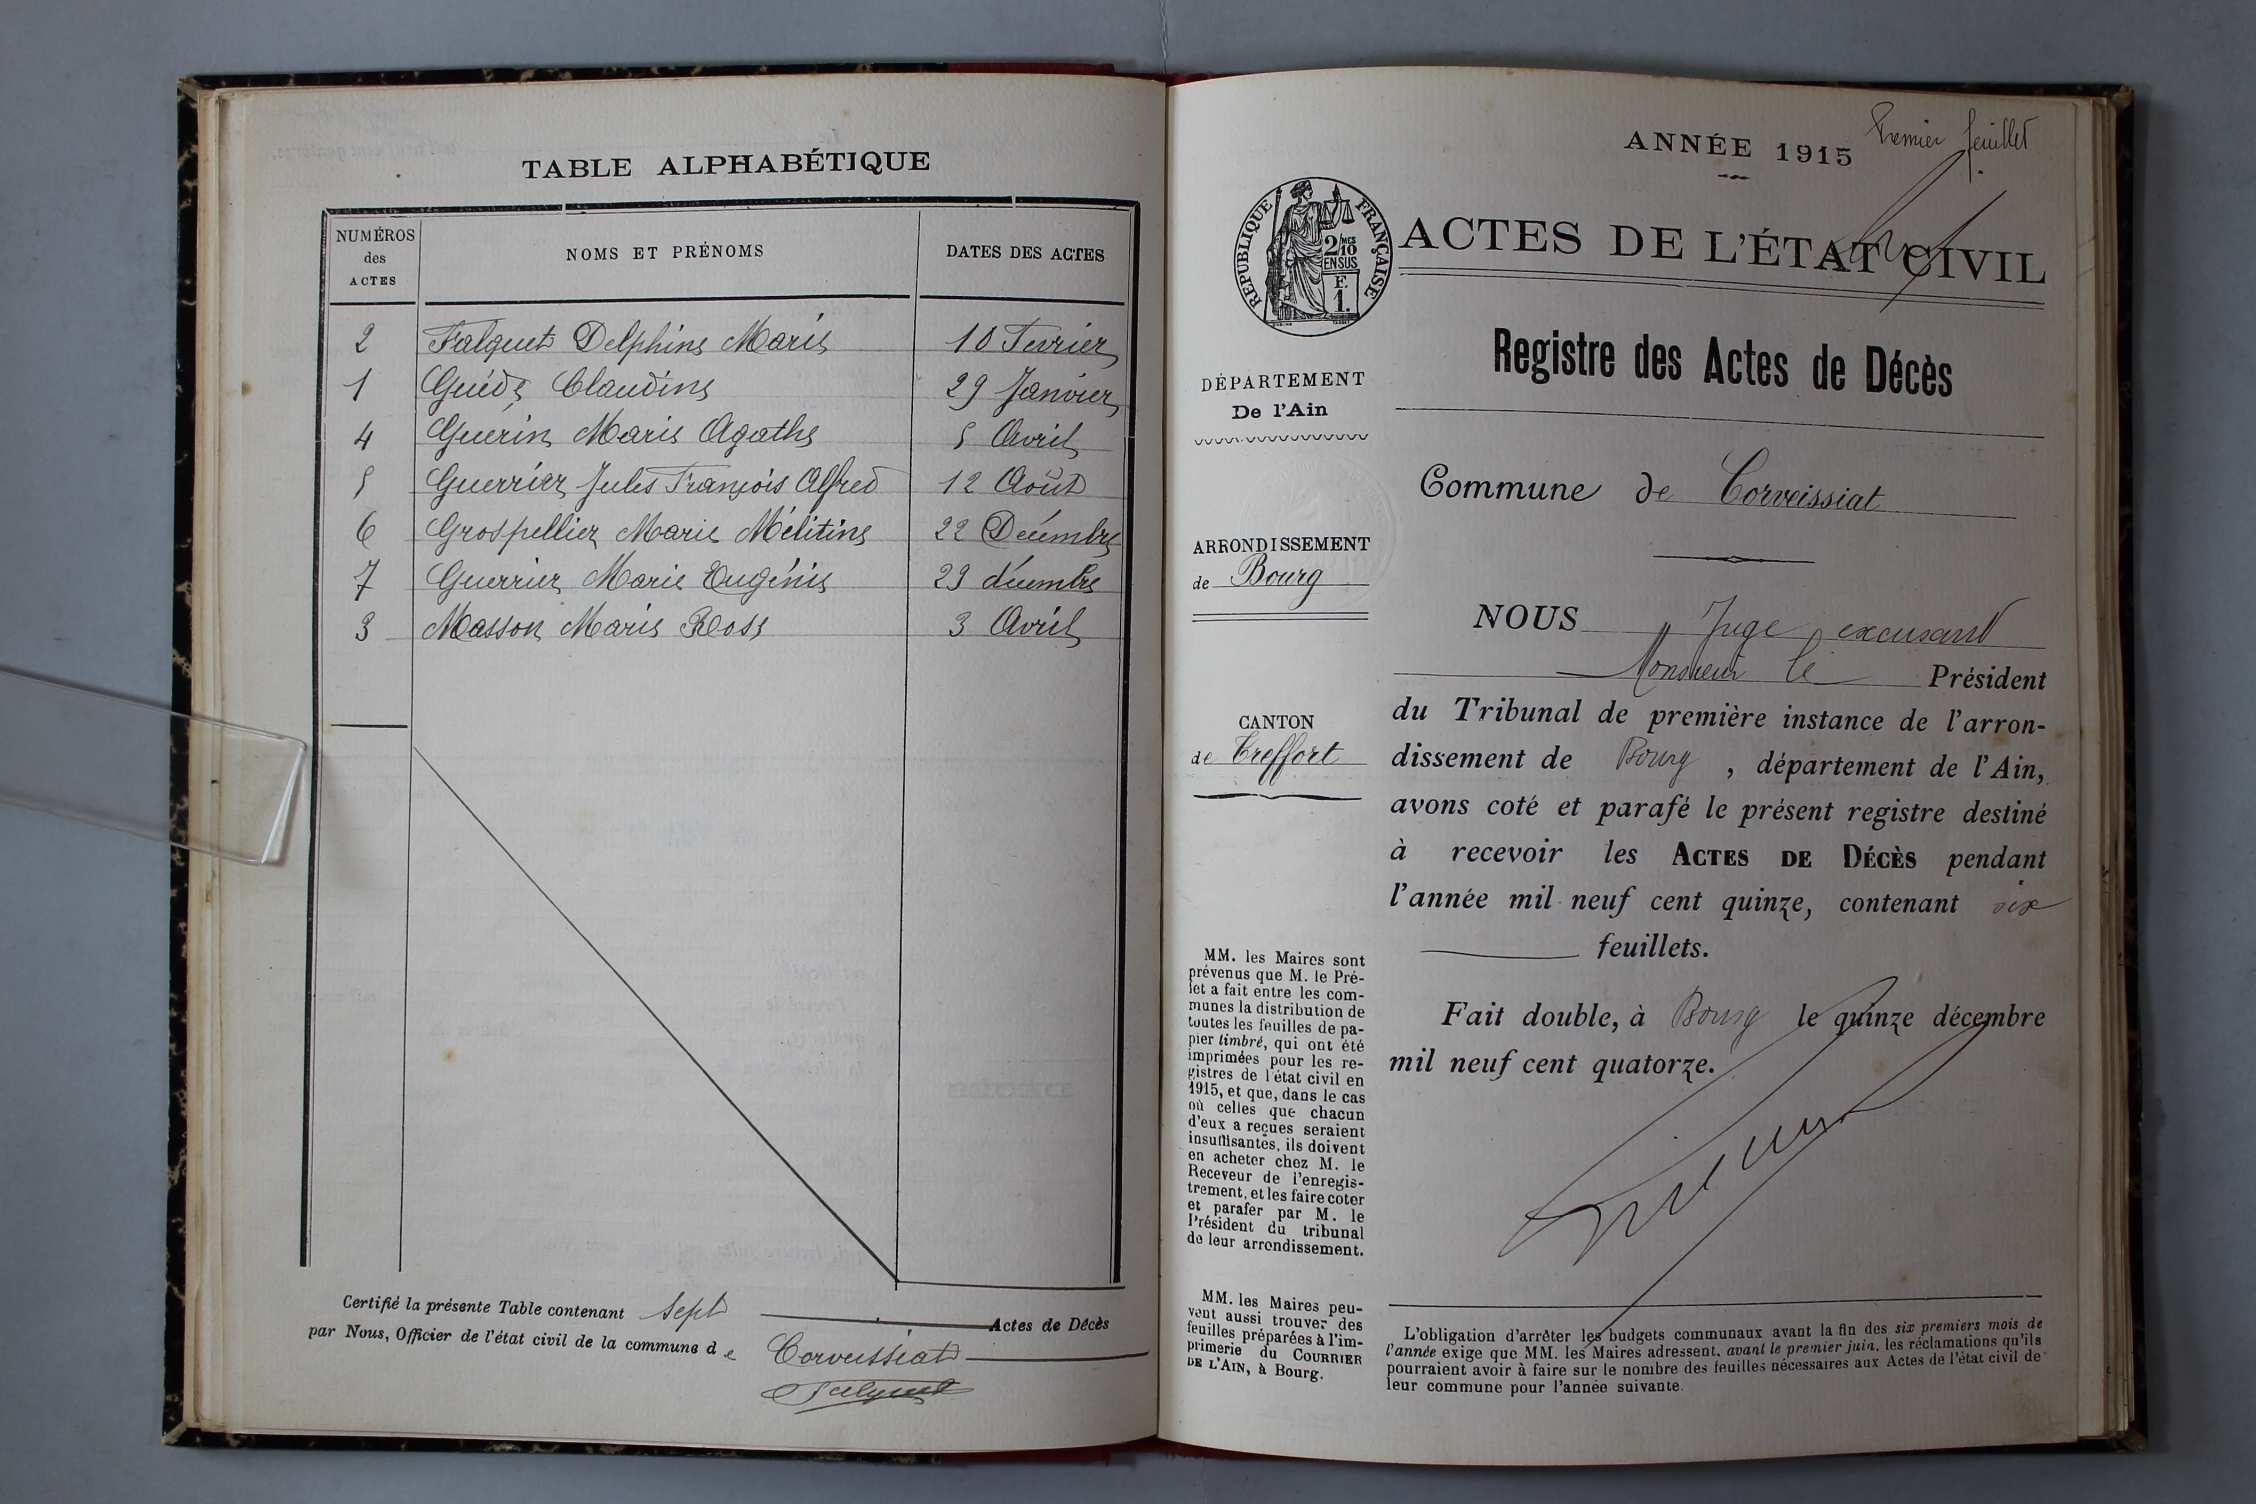 TABLE ALPHABÉTIQUE
NUMÉROS des ACTES NOMS ET PRÉNOMS DATES DES ACTES
2 Falquet Delphine Marie 10 Fevrier
1 Guéde Claudine 29 Janvier
4 Guérin Marie Agathe 5 Avril
5 Guerrier Jules François Alfred 12 Août
6 Grospellier Marie Mélitine 22 Décembre
7 Guerrier Marie Eugénie 29 décembre
3 Masson Marie Rose 3 Avril
Certifié la présente Table contenant sept Actes de Décès
par Nous, Officier de l'état civil de la commune de Corveissiat
Falquet
ANNÉE 1915
Premier feuillet
RÉPUBLIQUE FRANÇAISE
2/10 MES
EN SUS
F.
1.
ACTES DE L'ÉTAT CIVIL
Registre des Actes de Décès
DÉPARTEMENT
De l'Ain
Commune de Corveissiat
ARRONDISSEMENT
de Bourg
CANTON
de Treffort
NOUS Juge excusant
Monsieur le Président
du Tribunal de première instance de l'arron-
dissement de Bourg, département de l'Ain,
avons coté et parafé le présent registre destiné
à recevoir les ACTES DE DÉCÈS pendant
l'année mil neuf cent quinze, contenant six
feuillets.
Fait double, à Bourg le quinze décembre
mil neuf cent quatorze.
MM. les Maires sont
prévenus que M. le Pré-
fet a fait entre les com-
munes la distribution de
toutes les feuilles de pa-
pier timbré, qui ont été
imprimées pour les re-
gistres de l'état civil en
1915, et que, dans le cas
où celles que chacun
d'eux a reçues seraient
insuffisantes, ils doivent
en acheter chez M. le
Receveur de l'enregis-
trement, et les faire coter
et parafer par M. le
Président du tribunal
de leur arrondissement.
MM. les Maires peu-
vent aussi trouver des
feuilles préparées à l'im-
primerie du COURRIER
DE L'AIN, à Bourg.
L'obligation d'arrêter les budgets communaux avant la fin des six premiers mois de
l'année exige que MM. les Maires adressent, avant le premier juin, les réclamations qu'ils
pourraient avoir à faire sur le nombre des feuilles nécessaires aux Actes de l'état civil de
leur commune pour l'année suivante.